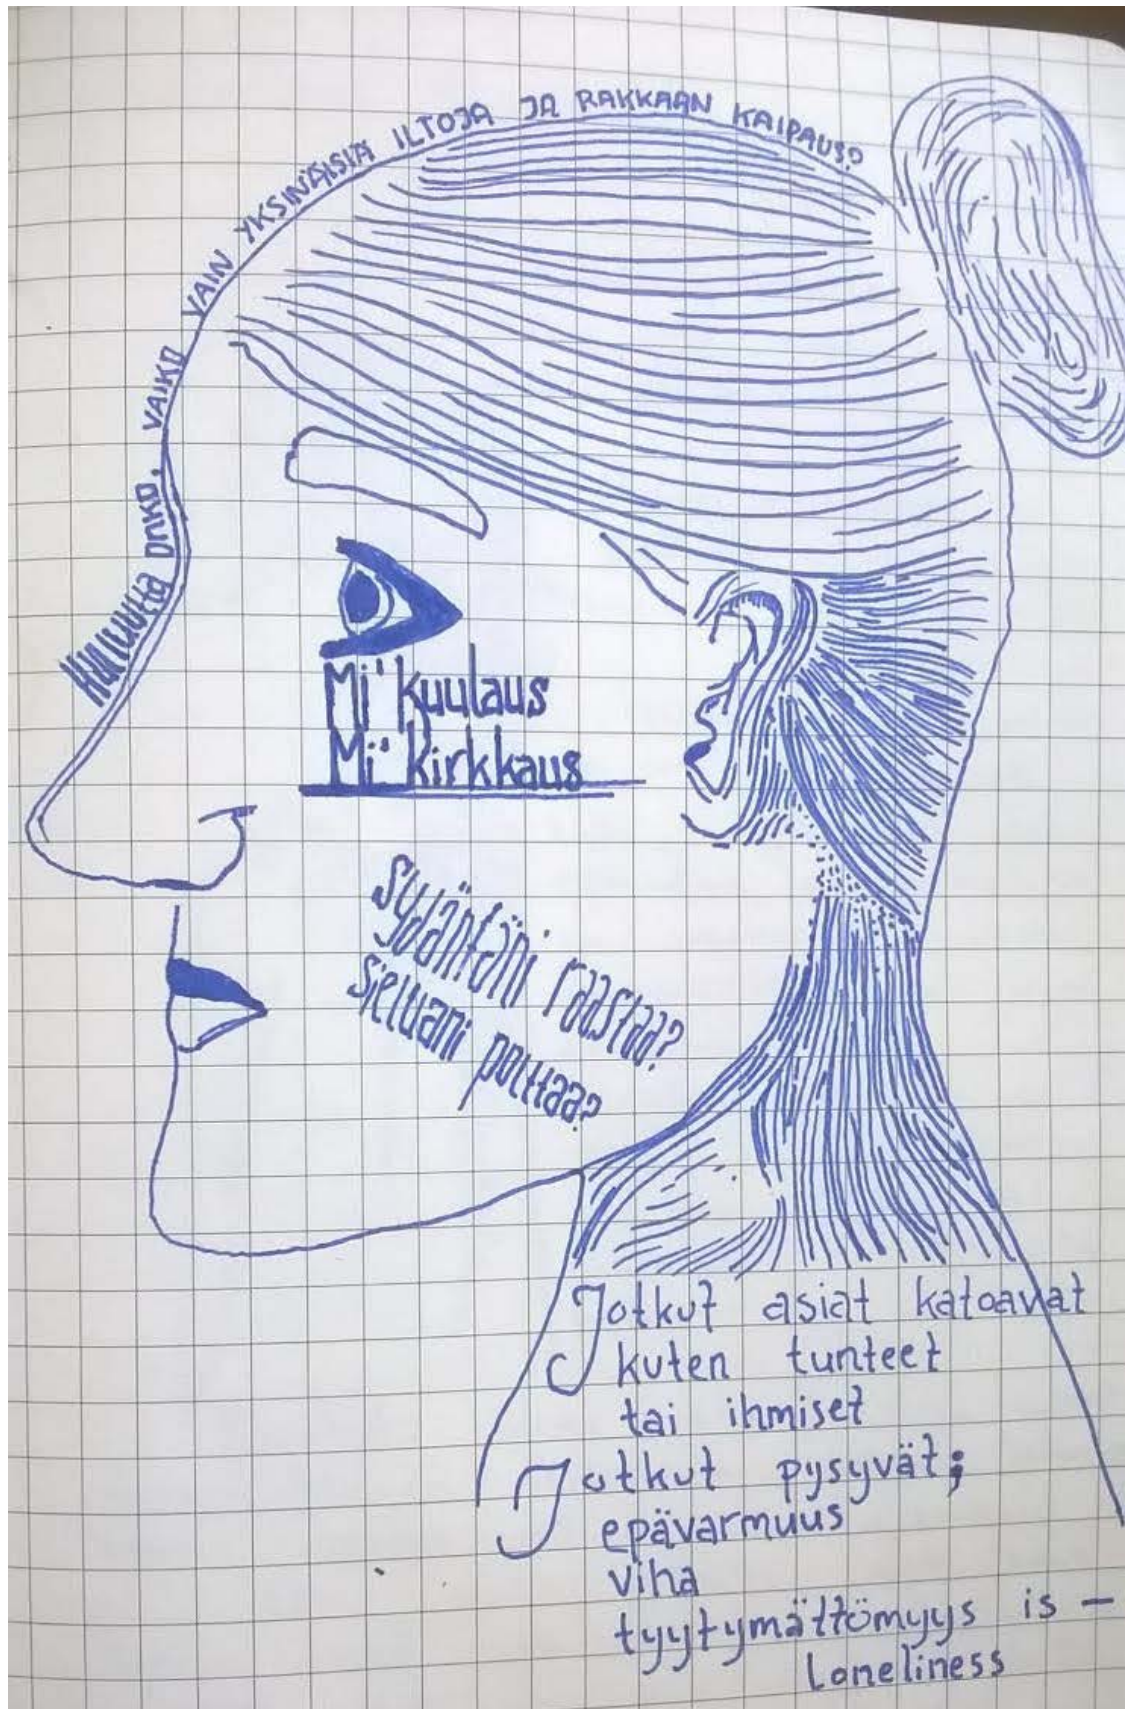 Hulluutta ONKO, VAIKO VAIN YKSINÄISIÄ ILTOJA JA RAKKAAN KAIPAUS?
Mi' kuulaus
Mi' kirkkaus
Sydäntäni raastaa?
Sieluani polttaa?
Jotkut asiat katoavat
kuten tunteet
tai ihmiset
Jotkut pysyvät;
epävarmuus
viha
tyytymättömyys is –
Loneliness